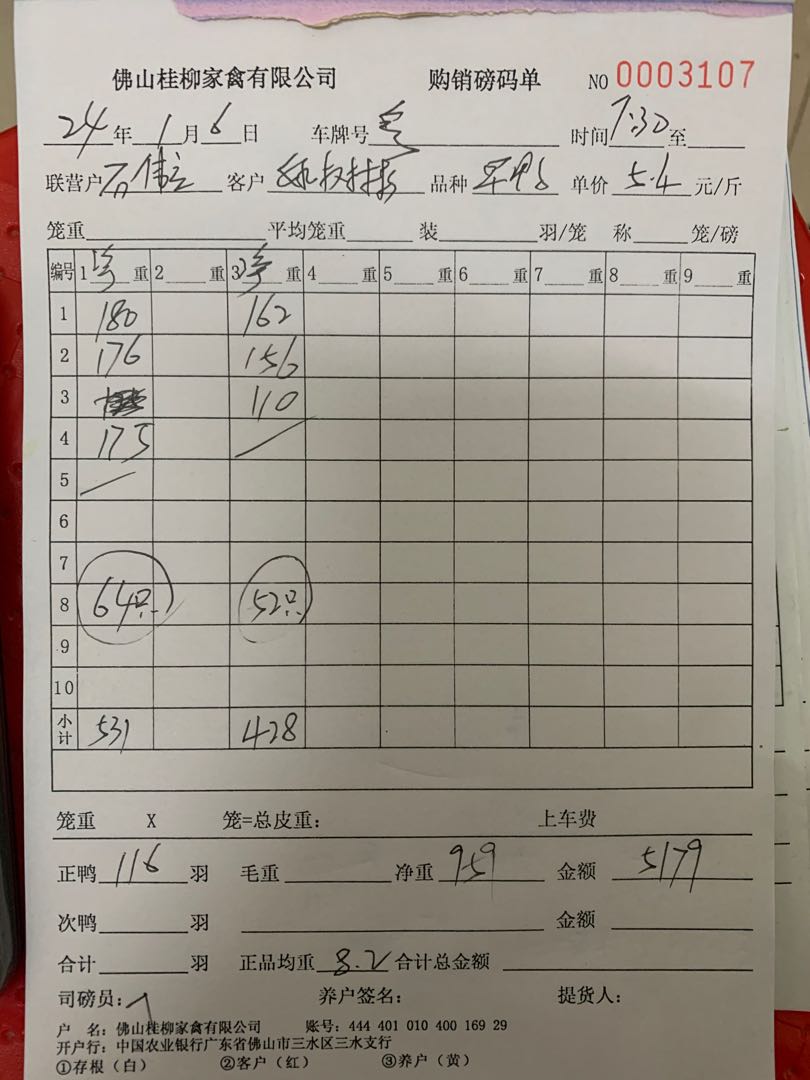 佛山桂柳家禽有限公司 购销磅码单 NO 0003107
24年1月6日 车牌号 时间7:30至
联营户 客户 品种 单价5.4元/斤
笼重 平均笼重 装 羽/笼 称 笼/磅
编号 1净重 2重 3净重 4重 5重 6重 7重 8重 9重
1 180 162
2 176 156
3 110
4 175
5
6
7
8 64只 52只
9
10
小计 531 428
笼重 X 笼=总皮重： 上车费
正鸭116羽 毛重 净重959 金额5179
次鸭 羽 金额
合计 羽 正品均重8.2 合计总金额
司磅员： 养户签名： 提货人：
户 名：佛山桂柳家禽有限公司 账号：444 401 010 400 169 29
开户行：中国农业银行广东省佛山市三水区三水支行
①存根（白） ②客户（红） ③养户（黄）